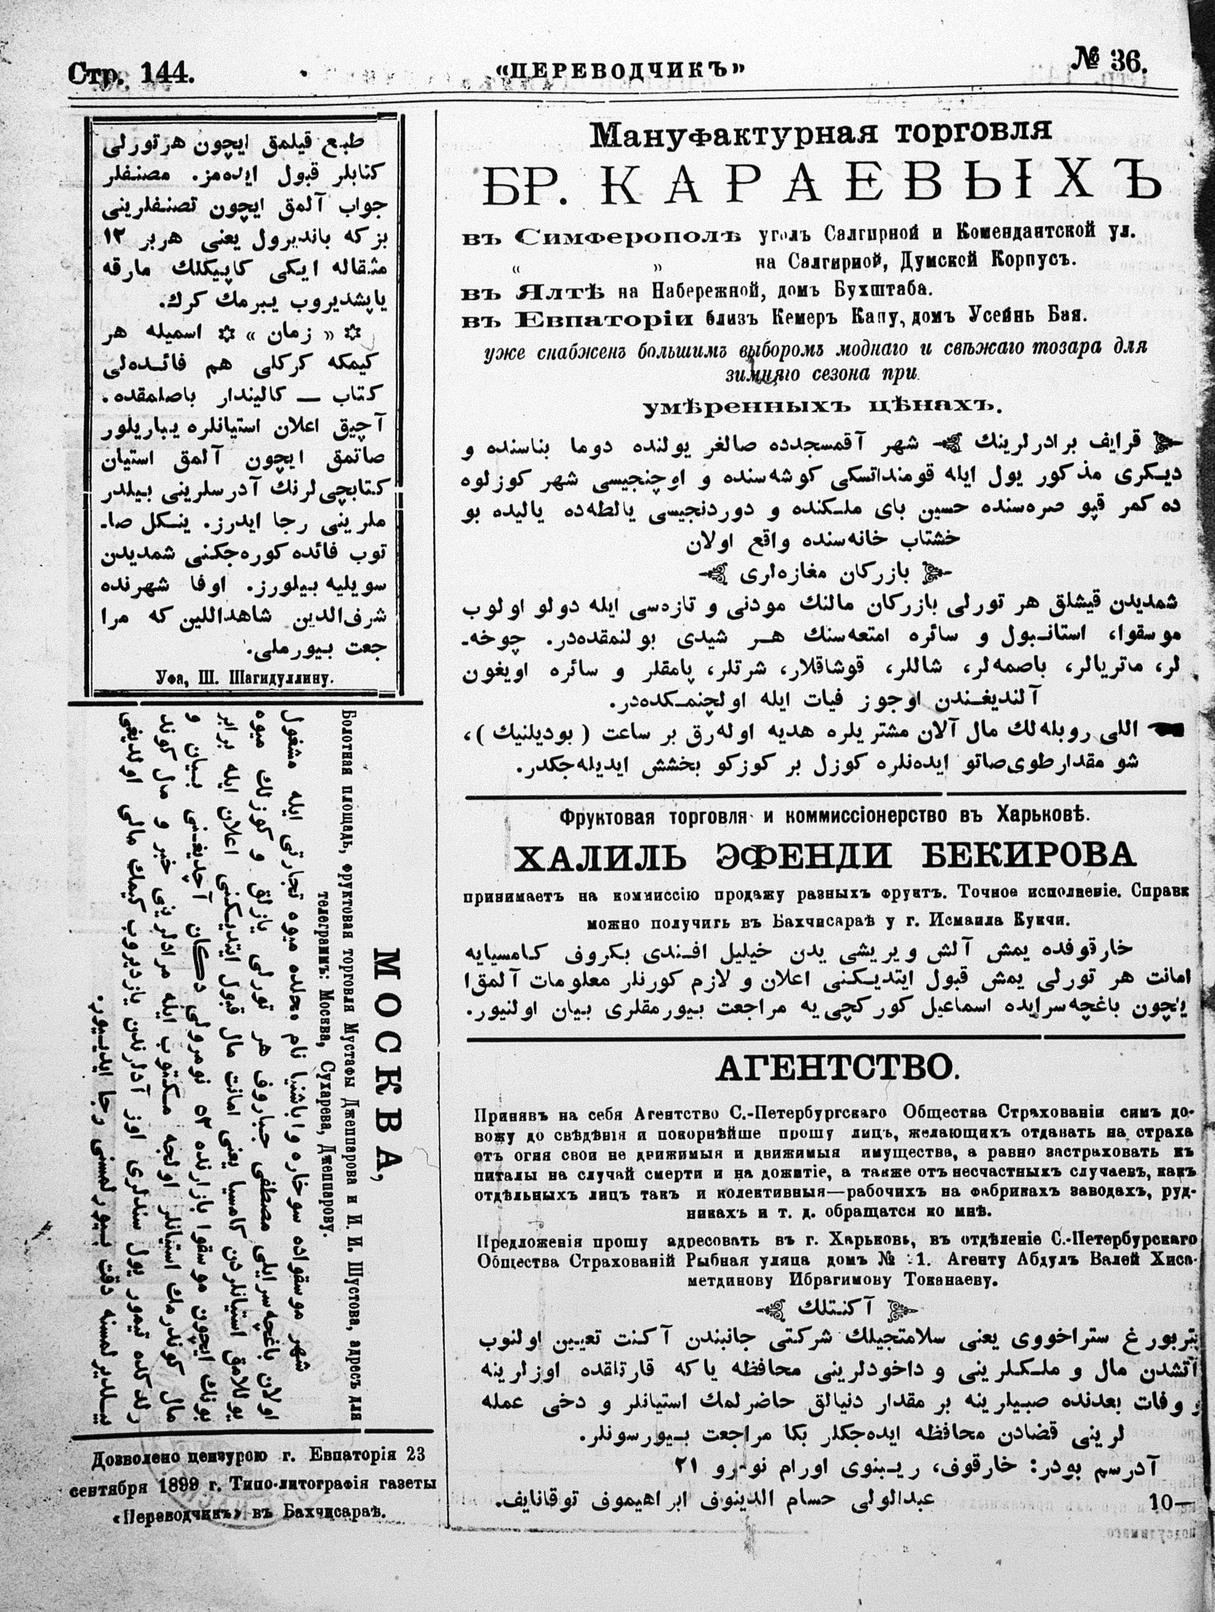 Стр. 144.
«ПЕРЕВОДЧИКЪ»
№ 36.
طبع قيلمق ايچون هرتورلى
كتابلر قبول ايده‌مز. مصنفلر
جواب آلمق ايچون تصنفلرينى
بزكه بانديرول يعنى هربر ١٢
مثقاله ايكى كاپيكلك مارقه
ياپشديروب يبرمك كرك.
« زمان » اسميله هر
كيمكه كركلى هم فائده‌لى
كتاب — كاليندار باصلمقده.
آچيق اعلان استيانلره يباريلور
صاتمق ايچون آلمق استيان
كتابچى‌لرنك آدرسلرينى بيلدر
ملرينى رجا ايدرز. ينكل صا-
توب فائده كوره‌جكنى شمديدن
سويليه بيلورز. اوفا شهرنده
شرف‌الدين شاهداللين‌كه مرا
جعت بيورملى.
Уфа, Ш. Шагидуллину.
МОСКВА,
Болотная площадь, фруктовая торговля Мустафы Джеппарова и И. И. Шустова, адресъ для
телеграммъ: Москва, Сухарева, Джеппарову.
شهر موسقواده سوخاره واباشنيا نام محلده ميوه تجارتى ايله مشغول
اولان باغچه‌سرايلى مصطفى جباروف هر تورلى يازلق و كوزلك ميوه
يوللامق استيانلردن كامسيا يعنى امانت مال قبول ايتديكنى اعلان ايله برابر
بونك ايچون موسقوا بازارنده ٥٢ نومرولى دكان آچديغنى بيان و
مال كوندرمك استيانلر اولجه مكتوب ايله مرادلرينى خبر و مال كوند
رلدكده تيمور يول سندلرى اوز آدلرندن يازديروب كيمك مالى اولديغى
بيلديرلمسنه دقت بيورلمسنى رجا ايديور.
Дозволено цензурою г. Евпаторія 23
сентября 1899 г. Типо-литографія газеты
«Переводчикъ» въ Бахчисараѣ.
Мануфактурная торговля
БР. КАРАЕВЫХЪ
въ Симферополѣ уголъ Салгирной и Комендантской ул.
„ „ на Салгирной, Думской Корпусъ.
въ Ялтѣ на Набережной, домъ Бухштаба.
въ Евпаторіи близъ Кемеръ Капу, домъ Усеинь Бая.
уже снабженъ большимъ выборомъ моднаго и свѣжаго товара для
зимняго сезона при
умѣренныхъ цѣнахъ.
قرايف برادرلرينك شهر آقمسجدده صالغر يولنده دوما بناسنده و
ديكرى مذكور يول ايله قومنداتسكى كوشه‌سنده و اوچنجيسى شهر كوزلوه
ده كمر قپو صره‌سنده حسين باى ملكنده و دوردنجيسى يالطه‌ده ياليده بو
خشتاب خانه‌سنده واقع اولان
بازركان مغازه‌لرى
شمديدن قيشلق هر تورلى بازركان مالنك مودنى و تازه‌سى ايله دولو اولوب
موسقوا، استانبول و سائره امتعه‌سنك هر شيدى بولنمقده‌در. چوخه-
لر، ماتريالر، باصمه‌لر، شاللر، قوشاقلار، شرتلر، پامقلر و سائره اويغون
آلنديغندن اوجوز فيات ايله اولچنمكده‌در.
اللى روبله‌لك مال آلان مشتريلره هديه اوله‌رق بر ساعت (بوديلنيك)،
شو مقدار طوى صاتو ايده‌نلره كوزل بر كوزكو بخشش ايديله‌جكدر.
Фруктовая торговля и коммиссіонерство въ Харьковѣ.
ХАЛИЛЬ ЭФЕНДИ БЕКИРОВА
принимаетъ на коммиссію продажу разныхъ фруктъ. Точное исполненіе. Справк
можно получить въ Бахчисараѣ у г. Исмаила Кукчи.
خارقوفده يمش آلش ويريشى يدن خيليل افندى بكروف كامسيايه
امانت هر تورلى يمش قبول ايتديكنى اعلان و لازم كورنلر معلومات آلمق ا
يچون باغچه‌سرايده اسماعيل كوركچى‌يه مراجعت بيورمقلرى بيان اولنيور.
АГЕНТСТВО.
Принявъ на себя Агентство С.-Петербургскаго Общества Страхованіи симъ до-
вожу до свѣдѣнія и покорнѣйше прошу лицъ, желающихъ отдавать на страха
отъ огня свои не движимыя и движимыя имущества, а равно застраховать къ
питалы на случай смерти и на дожитіе, а также отъ несчастныхъ случаевъ, какъ
отдѣльныхъ лицъ такъ и колективныя—рабочихъ на фабрикахъ заводахъ, руд-
никахъ и т. д. обращатся ко мнѣ.
Предложенія прошу адресовать въ г. Харьковь, въ отдѣленіе С.-Петербурскаго
Общества Страхованій Рыбная улица домъ № 21. Агенту Абдулъ Валей Хиса-
метдинову Ибрагимову Токанаеву.
آكنتلك
پتربورغ ستراخووى يعنى سلامتجيلك شركتى جانبندن آكنت تعيين اولنوب
آتشدن مال و ملكلرينى و داخودلرينى محافظه ياكه قارتلقده اوزلرينه
و وفات بعدنده صبيلرينه بر مقدار دنيالق حاضرلمك استيانلر و دخى عمله
لرينى قضادن محافظه ايده‌جكلر بكا مراجعت بيورسونلر.
آدرسم بودر: خارقوف، ريبنوى اورام نومرو ٢١
عبدالولى حسام الدينوف ابراهيموف توقانايف.
10—